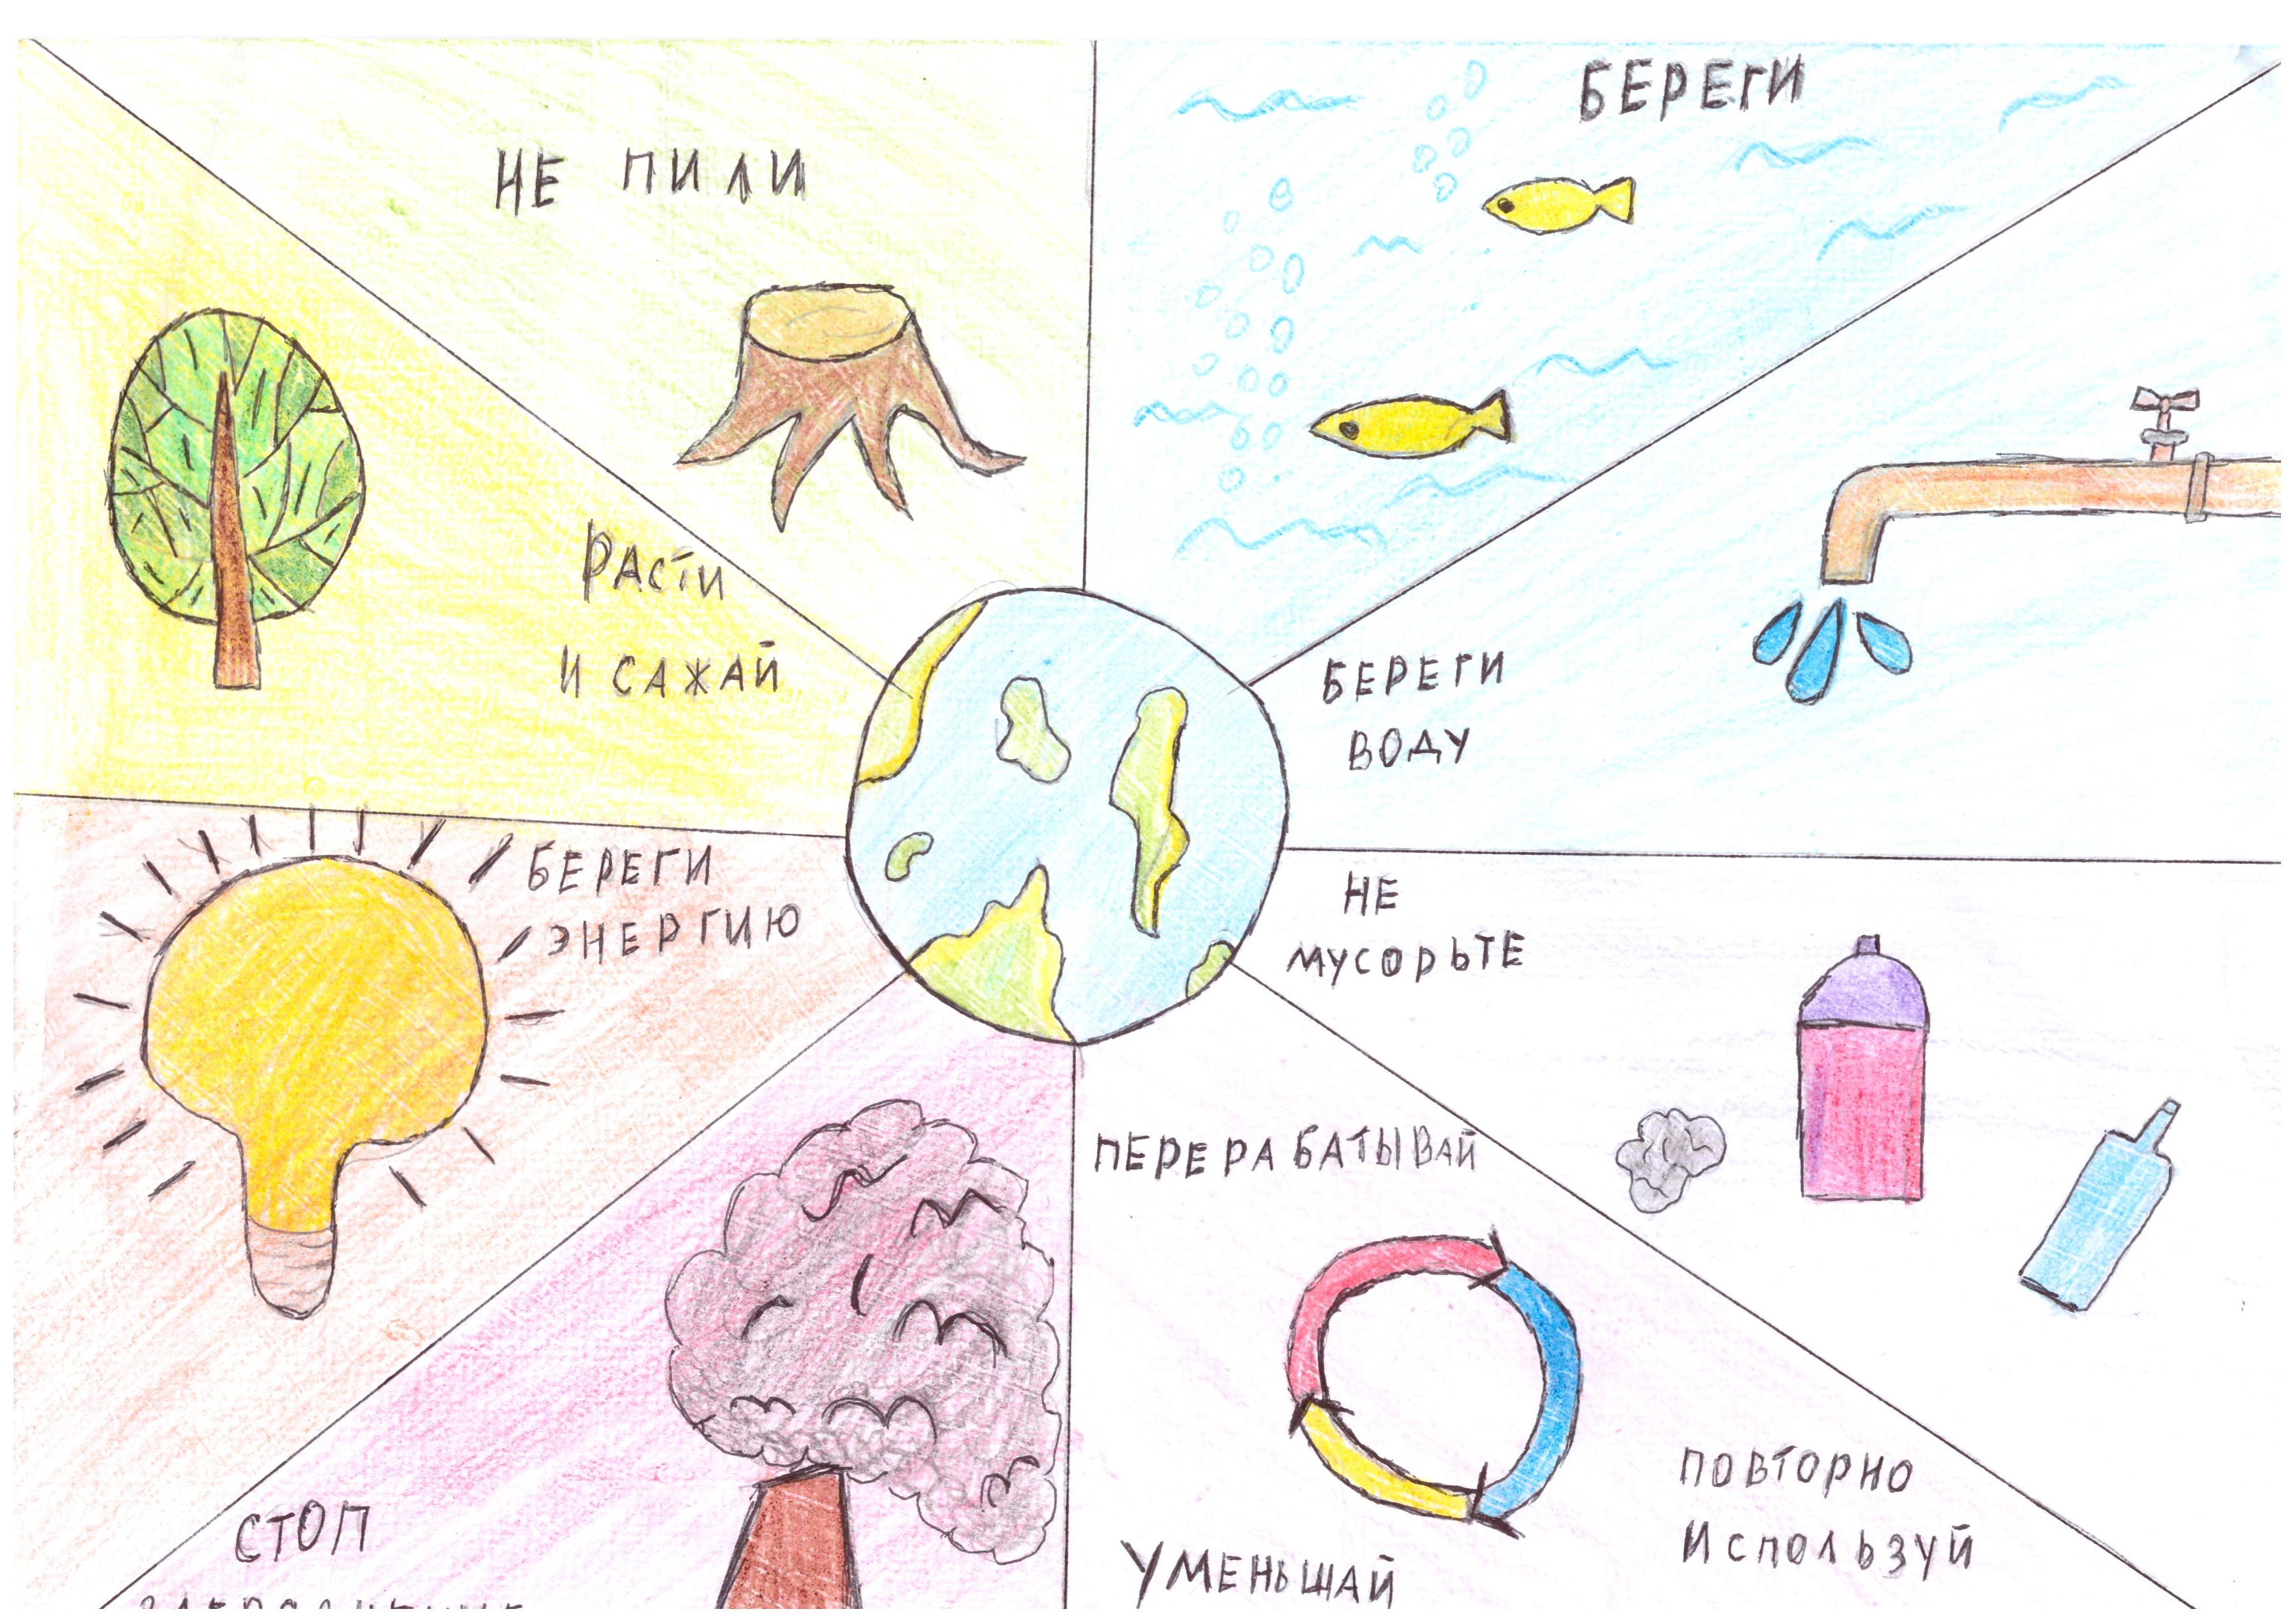 НЕ ПИЛИ
БЕРЕГИ
РАСТИ
И САЖАЙ
БЕРЕГИ
ВОДУ
БЕРЕГИ
ЭНЕРГИЮ
НЕ
МУСОРЬТЕ
ПЕРЕРАБАТЫВАЙ
ПОВТОРНО
ИСПОЛЬЗУЙ
УМЕНЬШАЙ
СТОП